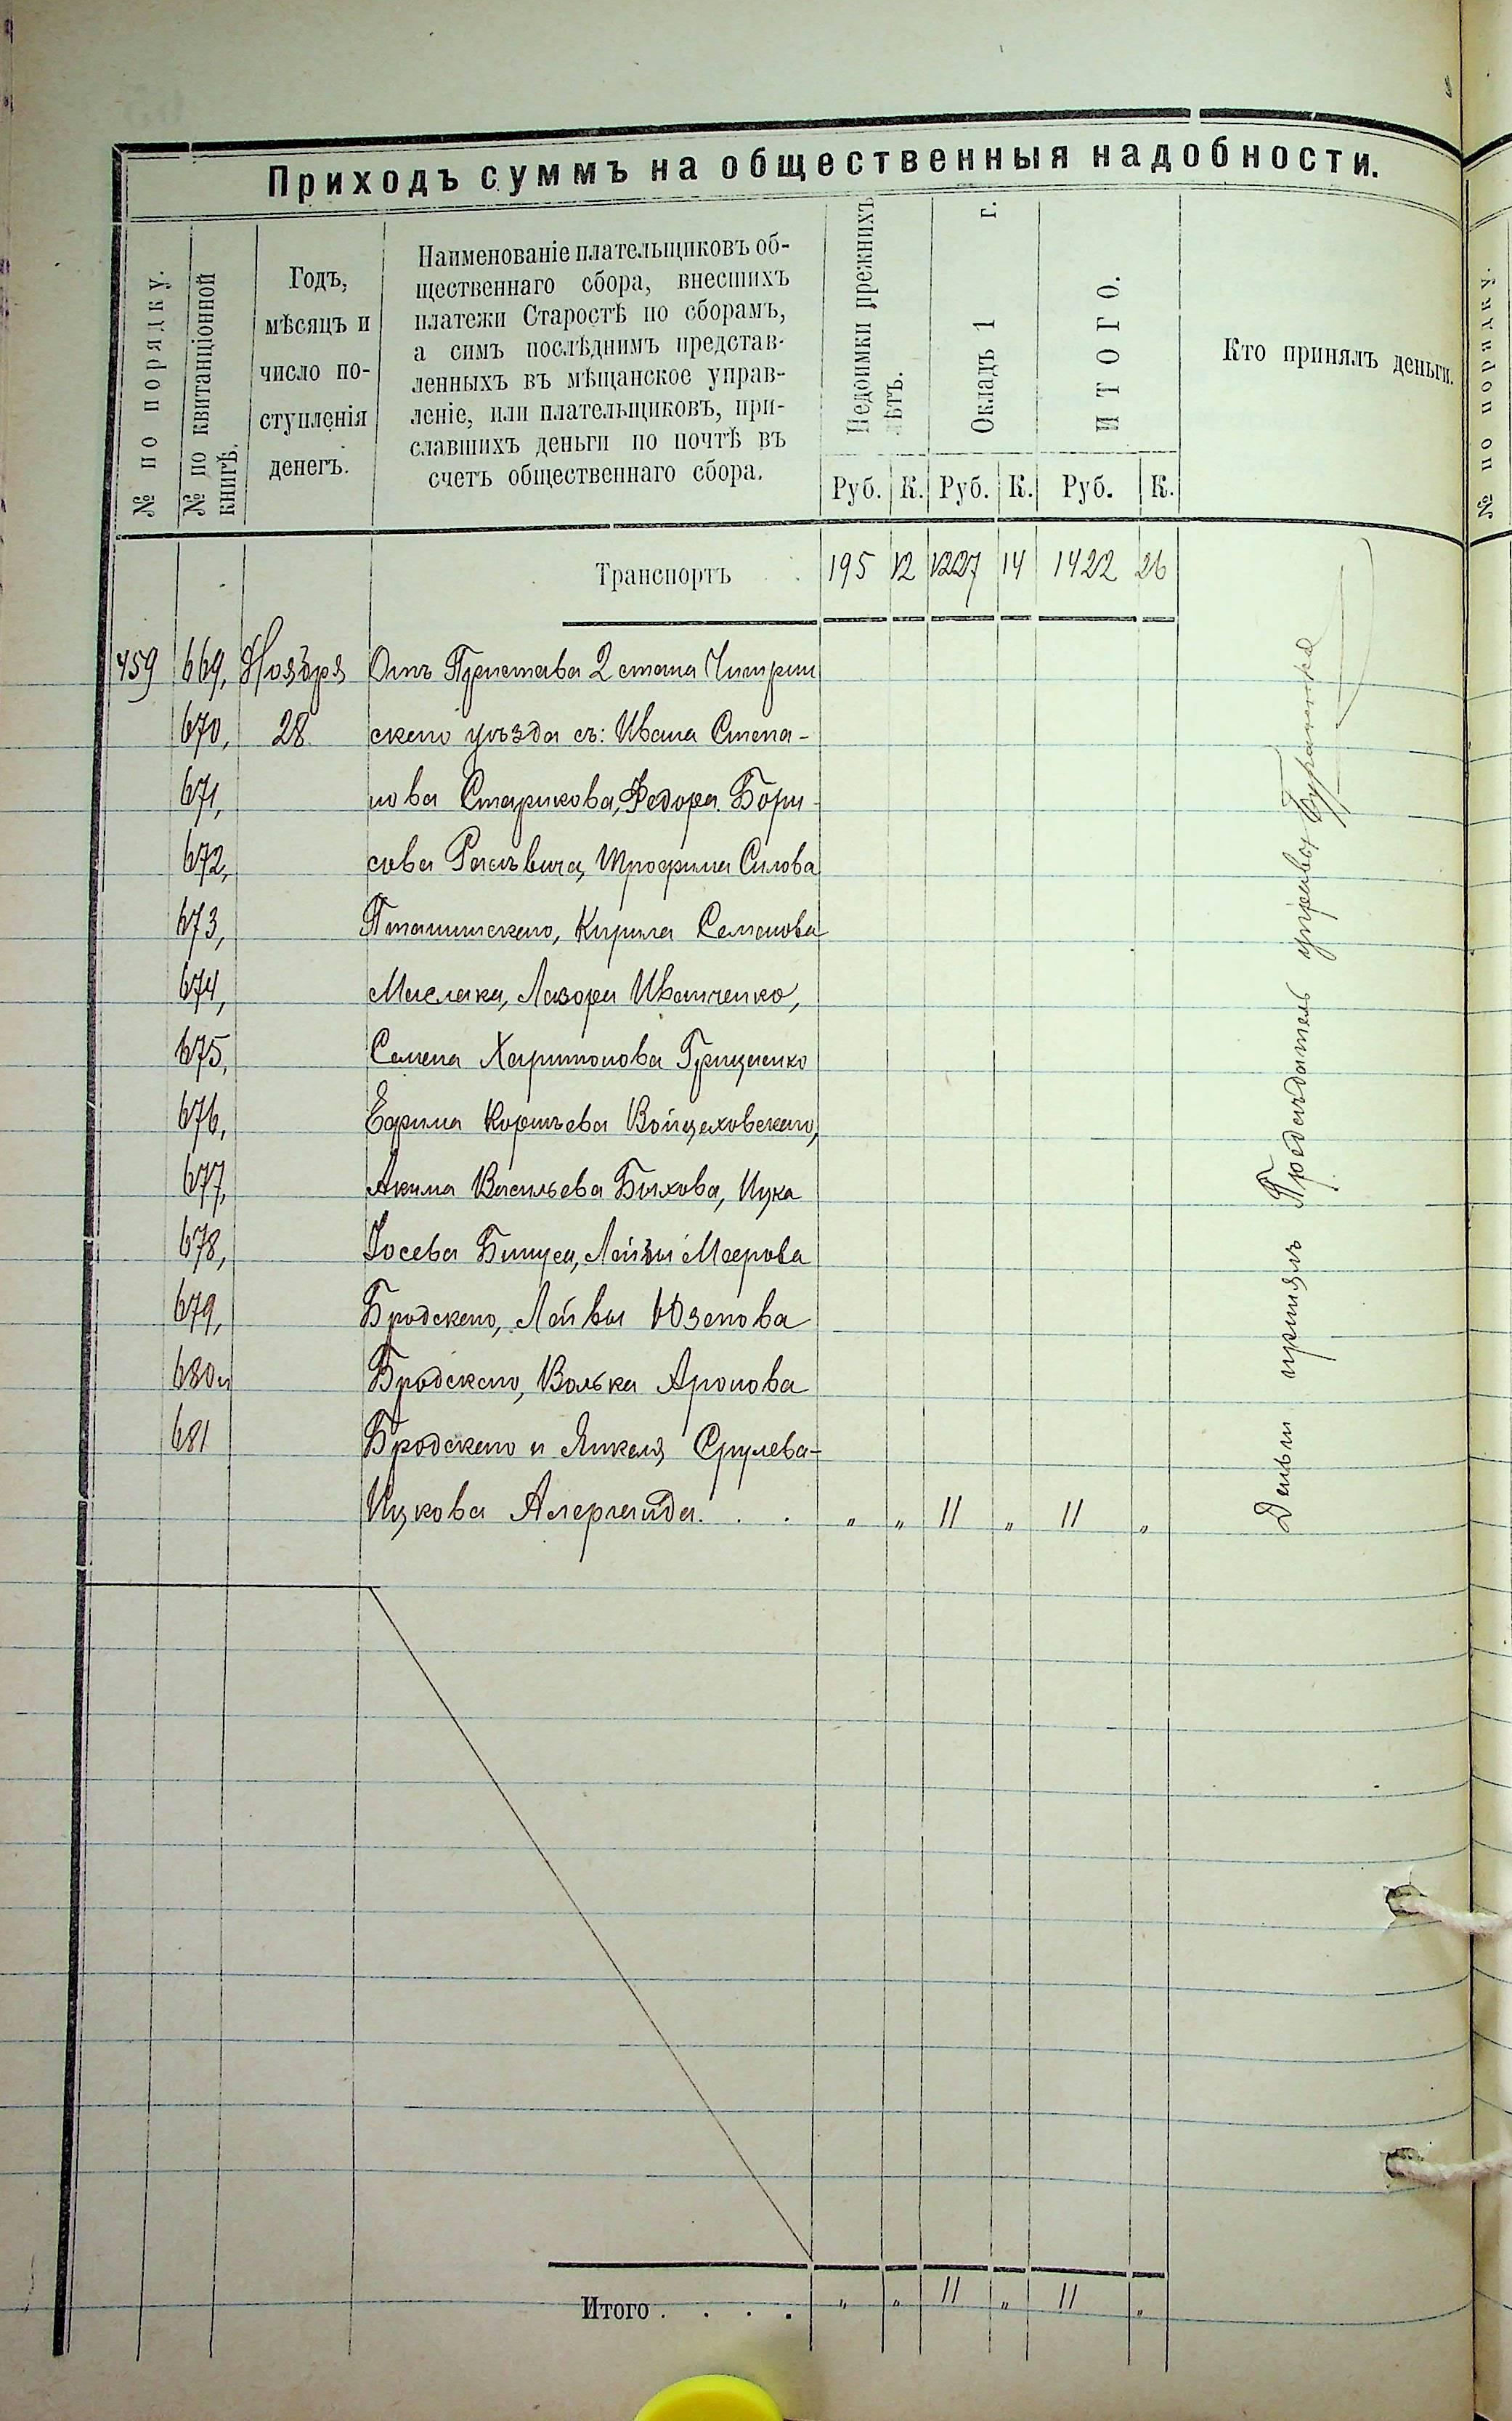 Приходъ суммъ на общественныя надобности.
№ по порядку.
№ по квитанціонной
книгѣ.
Годъ,
мѣсяцъ и
число по-
ступленія
денегъ.
Наименованіе плательщиковъ об-
щественнаго сбора, внесшихъ
платежи Старостѣ по сборамъ,
а симъ послѣднимъ представ-
ленныхъ въ мѣщанское управ-
леніе, или плательщиковъ, при-
славшихъ деньги по почтѣ въ
счетъ общественнаго сбора.
Недоимки прежнихъ
лѣтъ.
Окладъ 1 г.
ИТОГО.
Кто принялъ деньги.
Руб. К. Руб. К. Руб. К.
Транспортъ 195 12 1227 14 1422 26
459 669, Ноября Отъ Пристава 2 стана Чигрин
670, 28 скаго уѣзда съ: Ивана Степа-
671, нова Старикова, Федора Бори-
672, сова Расѣвича, Трофима Силова
673, Пташинскаго, Кирила Семенова
674, Маслака, Лазоря Иванченко,
675, Семена Харитонова Грищенко
676, Ефима Корнѣева Войцеховскаго,
677, Акима Васильева Быхова, Ицка
678, Іосева Бинуса, Лейзи Меерова
679, Бродскаго, Лейвы Юзепова
680 и Бродскаго, Волька Аронова
681 Бродскаго и Янкеля Срулева-
Ицкова . . „ „ 11 „ 11 „
Деньги принялъ Предсѣдатель управы
Итого . . . . „ „ 11 „ 11 „
№ по порядку.